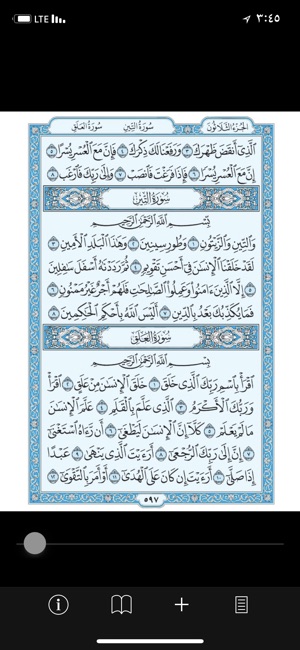 LTE
٣:٤٥
سُورَةُ العَلَق
سُورَةُ التِّين
الجُزءُ الثَّلَاثُونَ
الَّذِي أَنقَضَ ظَهْرَكَ ٣ وَرَفَعْنَا لَكَ ذِكْرَكَ ٤ فَإِنَّ مَعَ الْعُسْرِ يُسْرًا ٥
إِنَّ مَعَ الْعُسْرِ يُسْرًا ٦ فَإِذَا فَرَغْتَ فَانصَبْ ٧ وَإِلَىٰ رَبِّكَ فَارْغَب ٨
سُورَةُ التِّينِ
بِسْمِ اللَّهِ الرَّحْمَٰنِ الرَّحِيمِ
وَالتِّينِ وَالزَّيْتُونِ ١ وَطُورِ سِينِينَ ٢ وَهَٰذَا الْبَلَدِ الْأَمِينِ ٣
لَقَدْ خَلَقْنَا الْإِنسَٰنَ فِي أَحْسَنِ تَقْوِيمٍ ٤ ثُمَّ رَدَدْنَٰهُ أَسْفَلَ سَٰفِلِينَ
٥ إِلَّا الَّذِينَ ءَامَنُوا وَعَمِلُوا الصَّٰلِحَٰتِ فَلَهُمْ أَجْرٌ غَيْرُ مَمْنُونٍ ٦
فَمَا يُكَذِّبُكَ بَعْدُ بِالدِّينِ ٧ أَلَيْسَ اللَّهُ بِأَحْكَمِ الْحَٰكِمِينَ ٨
سُورَةُ العَلَقِ
بِسْمِ اللَّهِ الرَّحْمَٰنِ الرَّحِيمِ
اقْرَأْ بِاسْمِ رَبِّكَ الَّذِي خَلَقَ ١ خَلَقَ الْإِنسَٰنَ مِنْ عَلَقٍ ٢ اقْرَأْ
وَرَبُّكَ الْأَكْرَمُ ٣ الَّذِي عَلَّمَ بِالْقَلَمِ ٤ عَلَّمَ الْإِنسَٰنَ
مَا لَمْ يَعْلَمْ ٥ كَلَّا إِنَّ الْإِنسَٰنَ لَيَطْغَىٰ ٦ أَن رَّءَاهُ اسْتَغْنَىٰ
٧ إِنَّ إِلَىٰ رَبِّكَ الرُّجْعَىٰ ٨ أَرَءَيْتَ الَّذِي يَنْهَىٰ ٩ عَبْدًا
إِذَا صَلَّىٰ ١٠ أَرَءَيْتَ إِن كَانَ عَلَى الْهُدَىٰ ١١ أَوْ أَمَرَ بِالتَّقْوَىٰ ١٢
٥٩٧